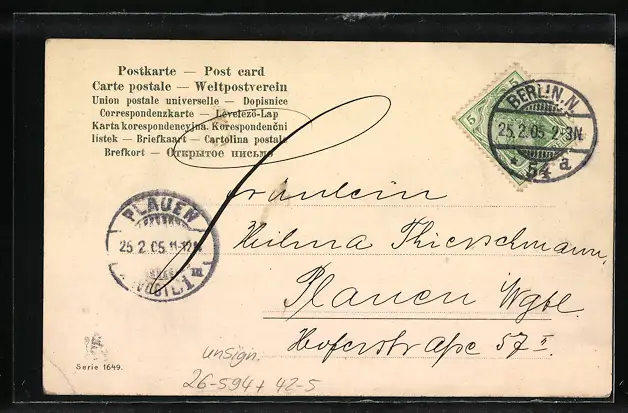 Postkarte — Post card
Carte postale — Weltpostverein
Union postale universelle — Dopisnice
Correspondenzkarte — Levelező-Lap
Karta korespondencyjna. Korespondenční
listek — Briefkaart — Cartolina postale
Brefkort — Открытое письмо
5
5
BERLIN. N.
25.2.05 2-3N
* 54 a
PLAUEN
25.2.05.11-12N
1
Fräulein
Helma Thierschmann,
Plauen Vgtl.
Hoferstraße 57 I.
unsign.
26-594 + 42-5
Serie 1649.